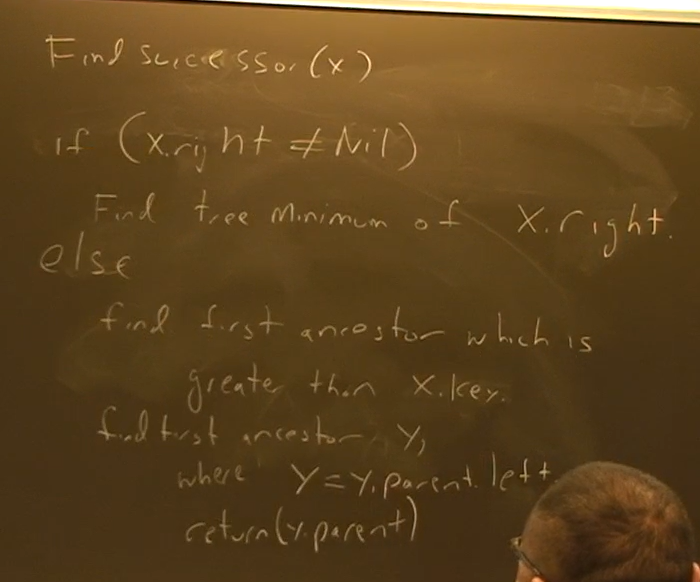 Find successor(x)
if (x.right ≠ Nil)
Find tree minimum of x.right.
else
find first ancestor which is
greater than x.key.
find first ancestor y,
where y = y.parent.left
return(y.parent)